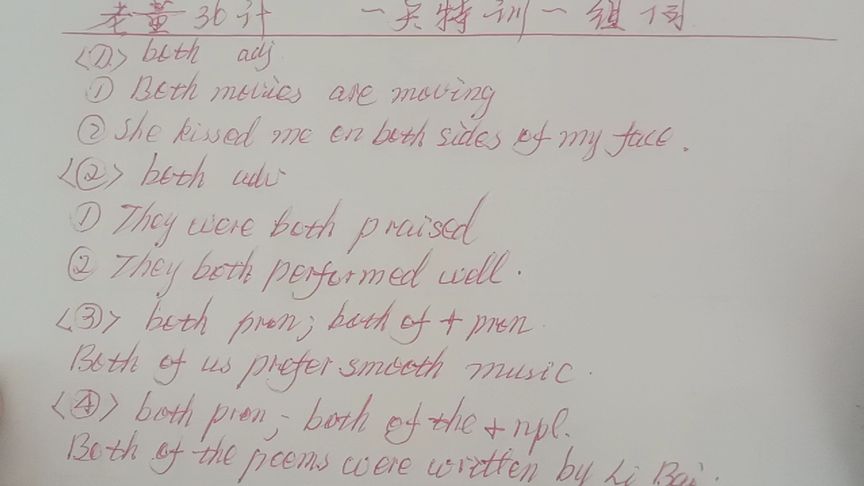 老董36计 一天特训一组词
<①> both adj
① Both movies are moving
② She kissed me on both sides of my face.
<②> both adv
① They were both praised
② They both performed well.
<③> both pron; both of + pron
Both of us prefer smooth music.
<④> both pron; both of the + npl.
Both of the poems were written by Li Bai.